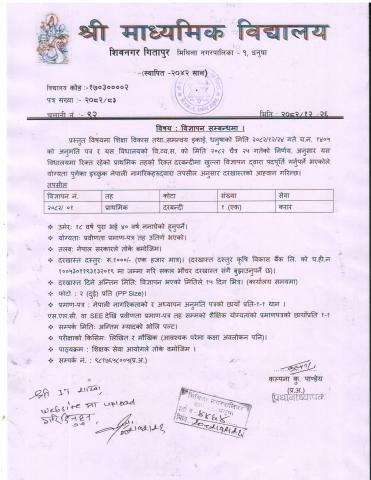 श्री माध्यमिक विद्यालय
शिवनगर गितापुर मिथिला नगरपालिका - १, धनुषा
-(स्थापित -२०४२ साल)
विद्यालय कोड :-१७०३००००२
पत्र सख्या :- २०८२/८३
चलानी नं. :- ९२
मिति : २०८२/१२ -२६
विषय : विज्ञापन सम्बन्धमा ।
प्रस्तुत विषयमा शिक्षा विकास तथा समन्वय इकाई, धनुषाको मिति २०८२/१२/२४ गते च.न. १४०५
को अनुमति पत्र र यस विद्यालयको वि.व्य.स. को मिति २०८२ चैत्र २५ गतेको निर्णय अनुसार यस
विद्यालयमा रिक्त रहेको प्राथमिक तहको रिक्त दरबन्दीमा खुल्ला विज्ञापन द्वारा पदपूर्ति गर्नुपर्ने भएकोले
योग्यता पुगेका इच्छुक नेपाली नागरिकहरुबाट तपसील अनुसार दरखास्तको आह्वान गरिन्छ।
तपसील
विज्ञापन नं. तह कोटा संख्या सेवा
२०८२/ ०१ प्राथमिक दरबन्दी १ (एक) करार
उमेर: १८ वर्ष पुरा भई ४० वर्ष ननाघेको हुनुपर्ने।
योग्यता: प्रवीणता प्रमाण-पत्र तह उतिर्ण भएको।
तलव: नेपाल सरकारले तोके बमोजिम।
दरखास्त दस्तुर: रु.१०००/- (एक हजार मात्र)। (दरखास्त दस्तुर कृषि विकास बैंक लि. को घ.ही.न
मा जम्मा गरि सक्कल भौचर दरखास्त संगै बुझाउनुपर्ने छ)।
दरखास्त दिने अन्तिम मिति: विज्ञापन भएको मितिले १५ दिन भित्र। (कार्यालय समयमा)
फोटो : २ (दुई) प्रति (PP Size)।
प्रमाण-पत्र: नेपाली नागरिकताको र अध्यापन अनुमति पत्रको छायाँ प्रति-१-१ थान ।
एस.एल.सी. वा SEE देखि प्रवीणता प्रमाण-पत्र तह सम्मको शैक्षिक योग्यताको प्रमाणपत्रको छायाँप्रति १-१
सम्पर्क मिति: अन्तिम म्यादको भोलि पल्ट।
परीक्षाको किसिम: लिखित र मौखिक (आवश्यक परेमा कक्षा अवलोकन पनि)।
पाठ्यक्रम : शिक्षक सेवा आयोगले तोके बमोजिम ।
सम्पर्क नं. :
कल्पना कु. पाण्डेय
(प्र.अ.)
प्रधानाध्यापक
website मा upload
मिथिला नगरपालिका